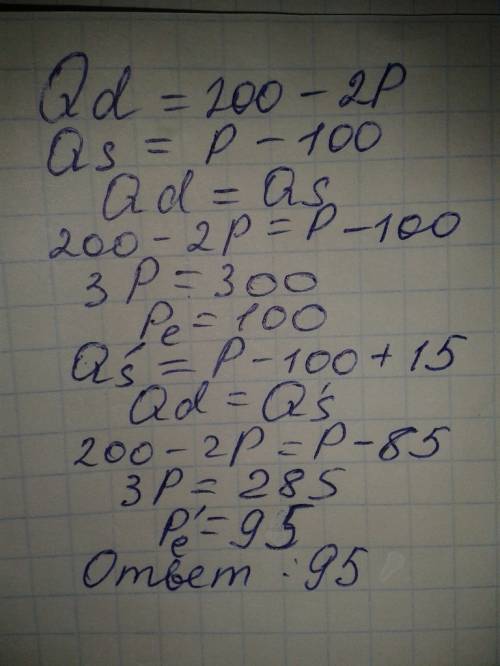 Qd = 200 - 2P
Qs = P - 100
Qd = Qs
200 - 2P = P - 100
3P = 300
Pe = 100
Qs' = P - 100 + 15
Qd = Qs'
200 - 2P = P - 85
3P = 285
Pe' = 95
Ответ : 95